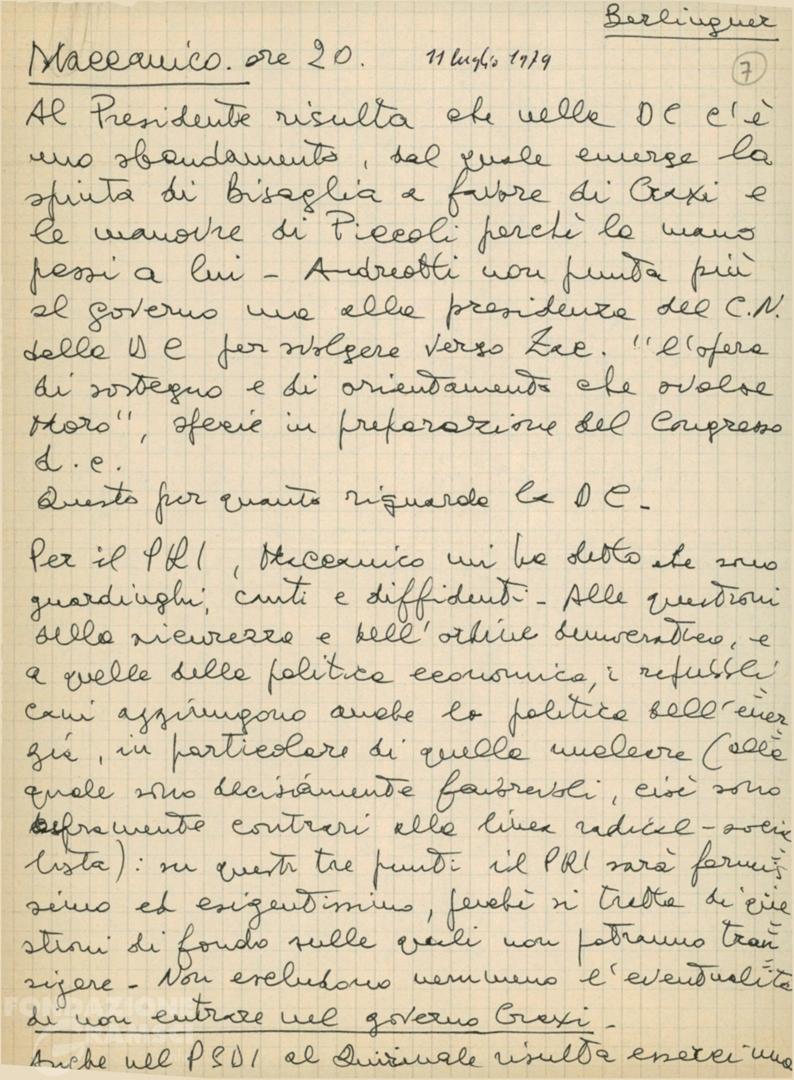 Berlinguer
Maccanico. ore 20. 11 luglio 1979
7
Al Presidente risulta che nella DC c'è
uno sbandamento, dal quale emerge la
spinta di Bisaglia a favore di Craxi e
le manovre di Piccoli perchè la mano
passi a lui - Andreotti non punta più
al governo ma alla presidenza del C.N.
della DC per svolgere verso Zac. "l'opera
di sostegno e di orientamento che svolse
Moro", specie in preparazione del Congresso
d.c.
Questo per quanto riguarda la DC -
Per il PRI, Maccanico mi ha detto che sono
guardinghi, cauti e diffidenti - Alle questioni
della sicurezza e dell'ordine democratico, e
a quelle della politica economica, i repubbli
cani aggiungono anche la politica dell'ener=
gia, in particolare di quella nucleare (alla
quale sono decisamente favorevoli, cioè sono
aspramente contrari alla linea radical-socia
lista): su questi tre punti il PRI sarà fermis=
simo ed esigentissimo, perchè si tratta di que=
stioni di fondo sulle quali non potranno tran=
sigere - Non escludono nemmeno l'eventualità
di non entrare nel governo Craxi -
Anche nel PSDI al Quirinale risulta esserci una
FONDAZIONE